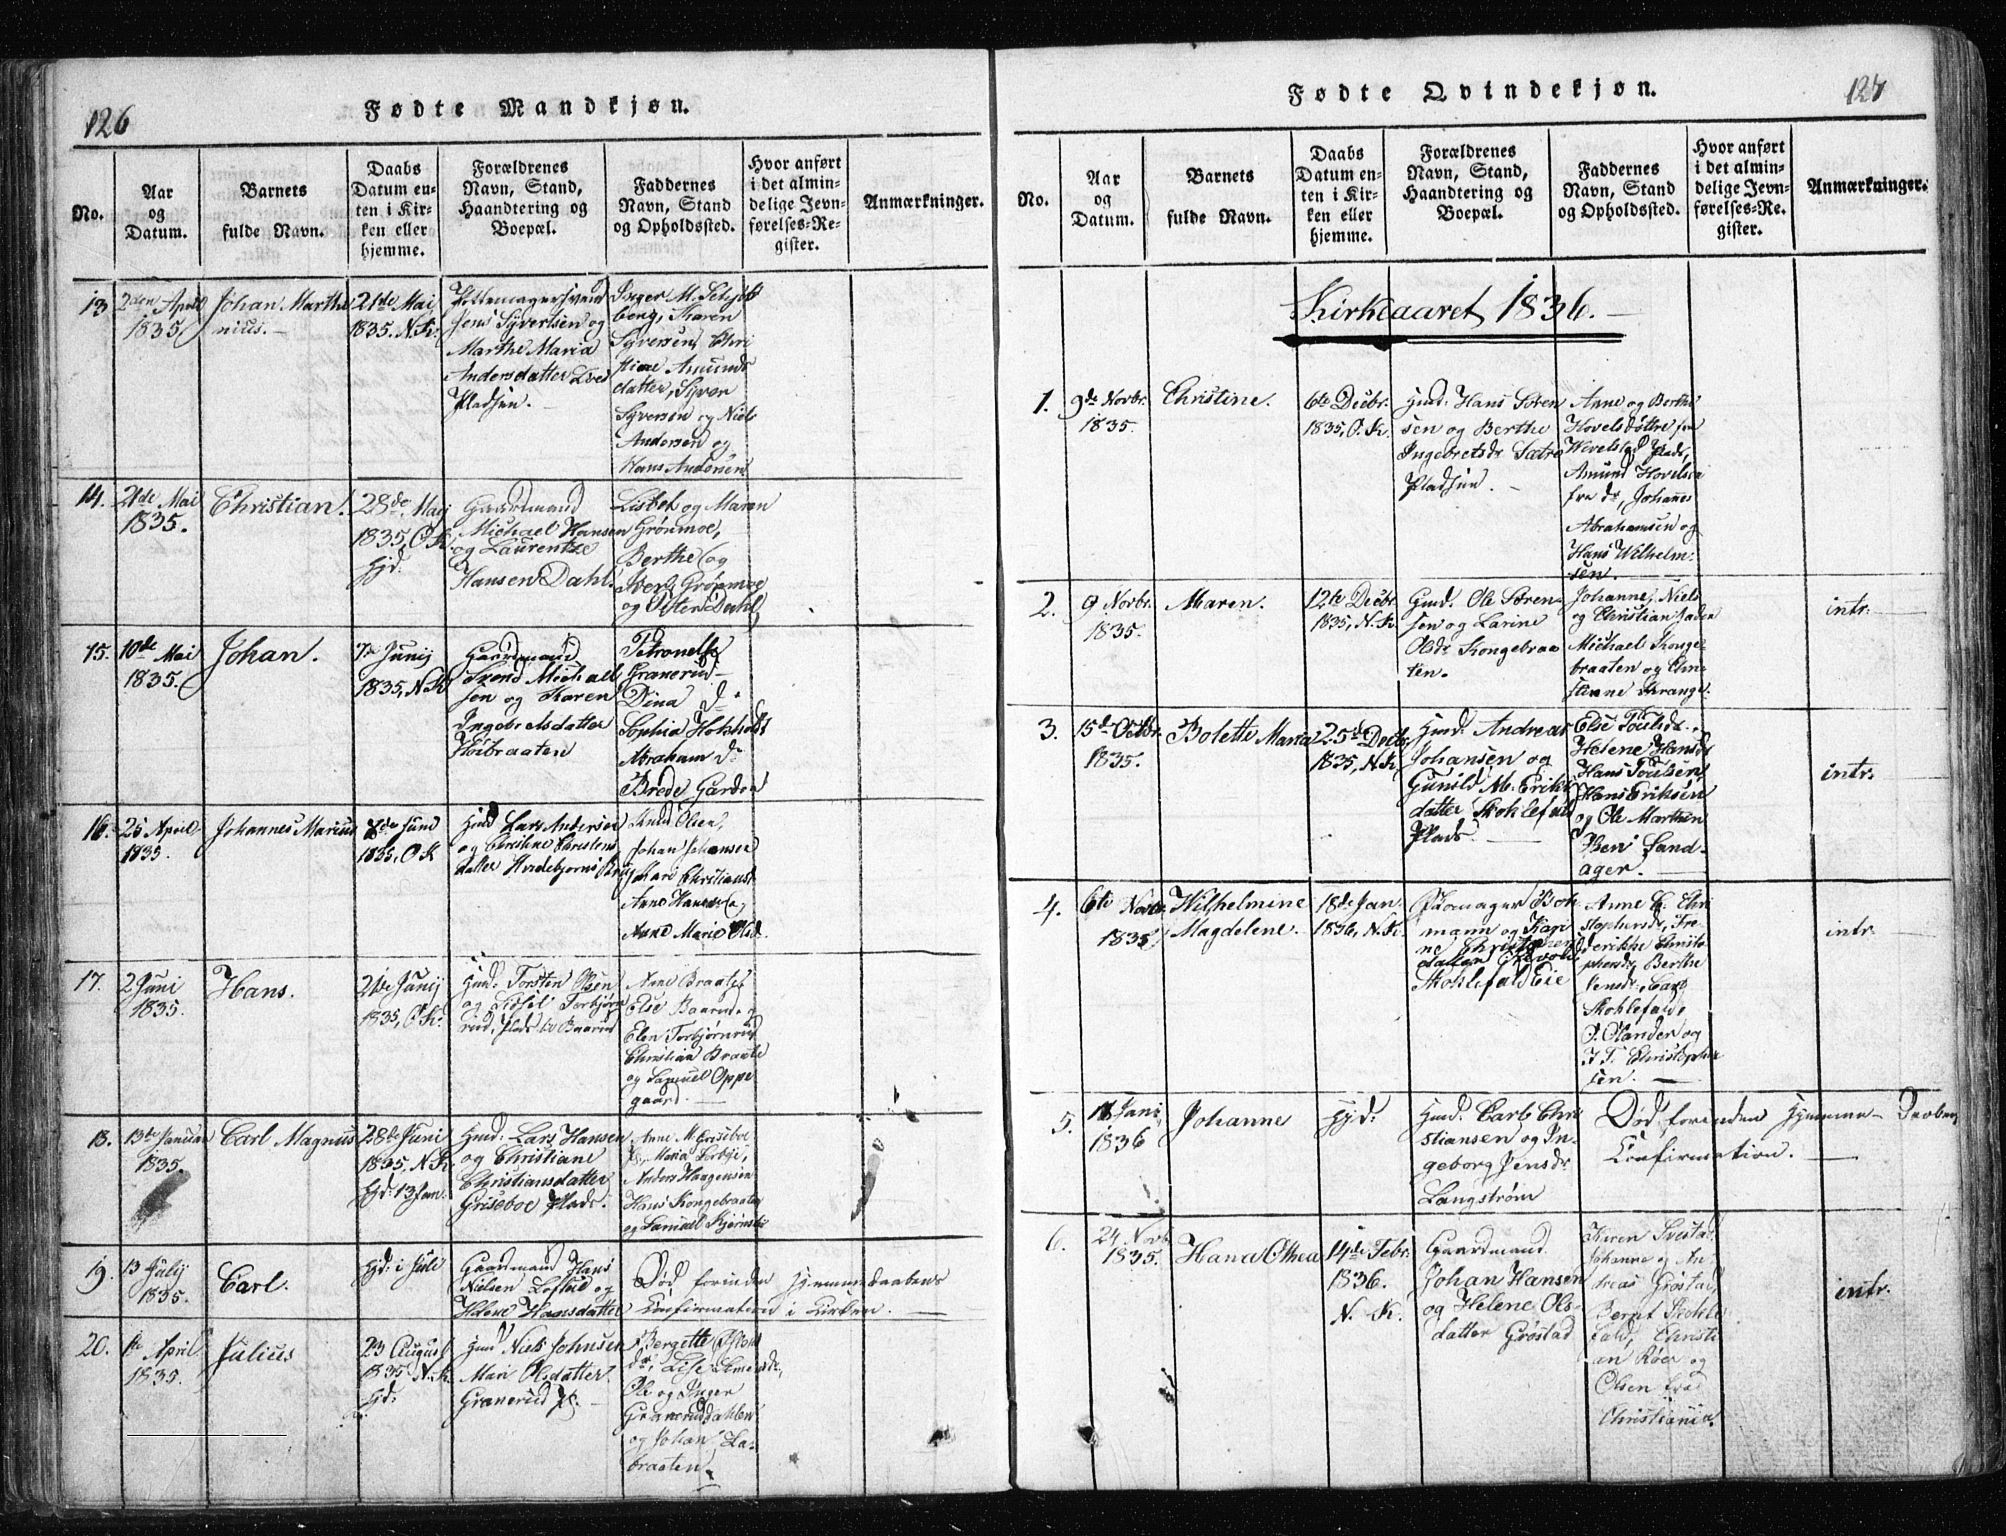 126
Fødte Mandkjøn.
No.
Aar
og
Datum.
Barnets
fulde Navn.
Daabs
Datum en-
ten i Kir-
ken eller
hjemme.
Forældrenes
Navn, Stand,
Haandtering og
Boepæl.
Faddernes
Navn, Stand
og Opholdssted.
Hvor anført
i det almin-
delige Jevn-
førelses-Re-
gister.
Anmærkninger.
13
2den April
1835
Johan Marthi
nius.
21de Maj
1835. N.K.
Pottemagersvend
Jens Syvertsen og
Marthe Maria
Andersdatter
Pladsen.
Inger M.
berg, Maren
Syversen, Chri
stiane Amunds
datter, Syver
Syversen og Niels
Andersen og
Hans Andersen
14.
21de Mai
1835.
Christian.
28de Maj
1835, O.K.
Hjd.
Gaardmand
Michael Hansen
og Laurentze
Hansen Dahl.
Lisbet og Maren
Grønmoe,
Berthe og
Iver Grønmoe
og Peter Dahl
15.
10de Mai
1835.
Johan.
7de Junij
1835, N.K.
Gaardmand
Svend Michael
sen og Karen
Ingebretsdatter
Høibraaten
Petronelle
Granerud
Dina do
Sophia Holsholdt
Abraham do
Brede Garden
16.
25 April
1835.
Johannes Marius
8de Juni
1835, O.K.
Hmd Lars Andersen
og Christine Christens
datter Hvidebjørns
Knud Olsen,
Johan Johansen
Johan Christians.
Anne Hansd. og
Anne Marie Olsd.
17.
2 Juni
1835.
Hans.
21de Junij
1835, O.K.
Hmd. Torsten Olsen
og Sidsel Torbjørn
rud, Plads u. Baarud
Ane Braate,
Else Baarud,
Elen Torbjørnrud
Christian Braate
og Samuel Oppe
gaard.
18.
13de Januar
1835.
Carl Magnus
28de Juni
1835, N.K.
Hjd. 13 Jan.
Hmd. Lars Hansen
og Christiane
Christiansdatter
Griseboe Plads.
Anne M. Griseboe
Maria
Anders Haagensen
Hans Kongebraaten
og Samuel
19.
13 Julij
1835.
Carl.
Hjd. i Juli
Gaardmand Hans
Nielsen Loftud og
Helene Hansdatter
Død forinden Hjemmedaabens
Confirmation i Kirken.
20.
1te April
1835.
Julius
23 August
1835 N.K.
Hjd.
Hmd Niels Johnsen
Mari Olsdatter
Granerud Pl.
Bergette
dr, Lise
Ole og Inger
Graneruddahlen
og Johan La-
braaten.
Fødte Qvindekjøn.
127
No.
Aar
og
Datum.
Barnets
fulde Navn.
Daabs
Datum en-
ten i Kir-
ken eller
hjemme.
Forældrenes
Navn, Stand,
Haandtering og
Boepæl.
Faddernes
Navn, Stand
og Opholdssted.
Hvor anført
i det almin-
delige Jevn-
førelses-Re-
gister.
Anmærkninger.
Kirkeaaret 1836.
1.
9de Novbr.
1835.
Christine.
6te Decbr.
1835, O.K.
Hmd. Hans Søren
sen og Berthe
Ingebretsdr Sætre
Pladsen.
Anne og Berthe
Hovelsdøttre fra
Wevelstad Plads,
Amund Hovelsen
fra do, Johannes
Abrahamsen og
Hans Wilhelm-
sen.
2.
9 Novbr.
1835.
Maren.
12te Decbr
1835, N.K.
Hmd. Ole Søren-
sen og Larine
Olsdr Kongebraa
ten.
Johanne, Niels
og Christian
Michael Konge-
braaten og Chri-
stiane Krange.
intr.
3.
15de Octbr.
1835.
Bolette Maria
25de Decbr.
1835, N.K.
Hmd. Andreas
Johansen og
Gunild M. Eriks
datter Skohlefald
Plads.
Else Poulsdr.
Helene Hansdr
Hans Poulsen,
Hans Eriksen
og Ole Marthin
Iversen Sand-
ager.
intr.
4.
6te Novbr
1835
Wilhelmine
Magdelene.
18de Jan
1836, N.K.
Skomager Boh
mann og Kari
ne Christophers
datter
Skohlefald Eie
Anne C. Chri
stophersdr, Fre-
derikke Christo
phersdr, Berthe
Jensdr, Carl
Skohlefald,
O. Olander og
I. T. Christopher
sen.
intr.
5.
18 Jani
1836
Johanne
Hjd.
Hmd. Carl Chri
stiansen og In-
geborg Jensdr
Langstrøm
Død forinden Hjemme-Daabens
Confirmation.
6.
24 Novb.
1835.
Hana Othea
14de Febr.
1836.
N.K.
Gaardmand
Johan Hansen
og Helene Ols-
datter Grøstad
Karen Svestad
Johanne og An
dreas Grøstad,
Bernt Skohle
fald, Christi
an Røer og
Olsen fra
Christiania.
intr.